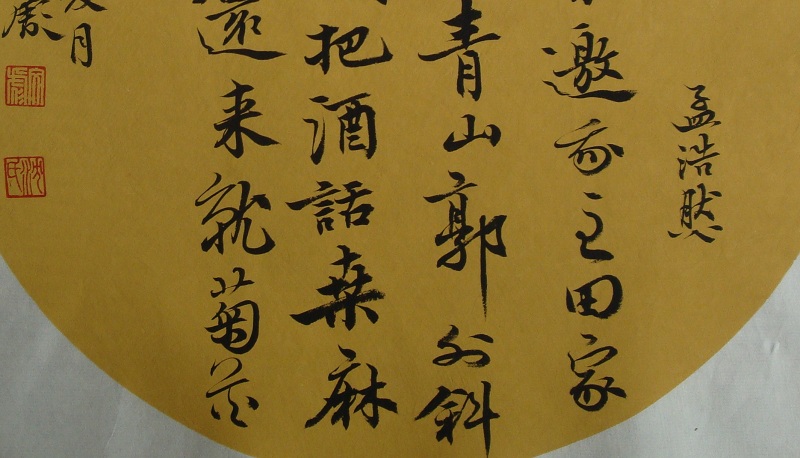 孟浩然
邀我至田家
青山郭外斜
把酒話桑麻
還来就菊花
月